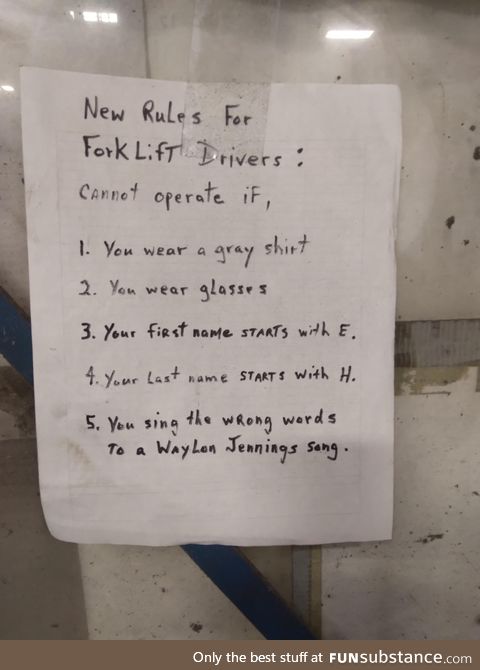 New Rules For
Forklift Drivers:
Cannot operate if,
1. You wear a gray shirt
2. You wear glasses
3. Your first name STARTS with E.
4. Your Last name STARTS with H.
5. You sing the wrong words
To a Waylon Jennings song.
Only the best stuff at FUNsubstance.com